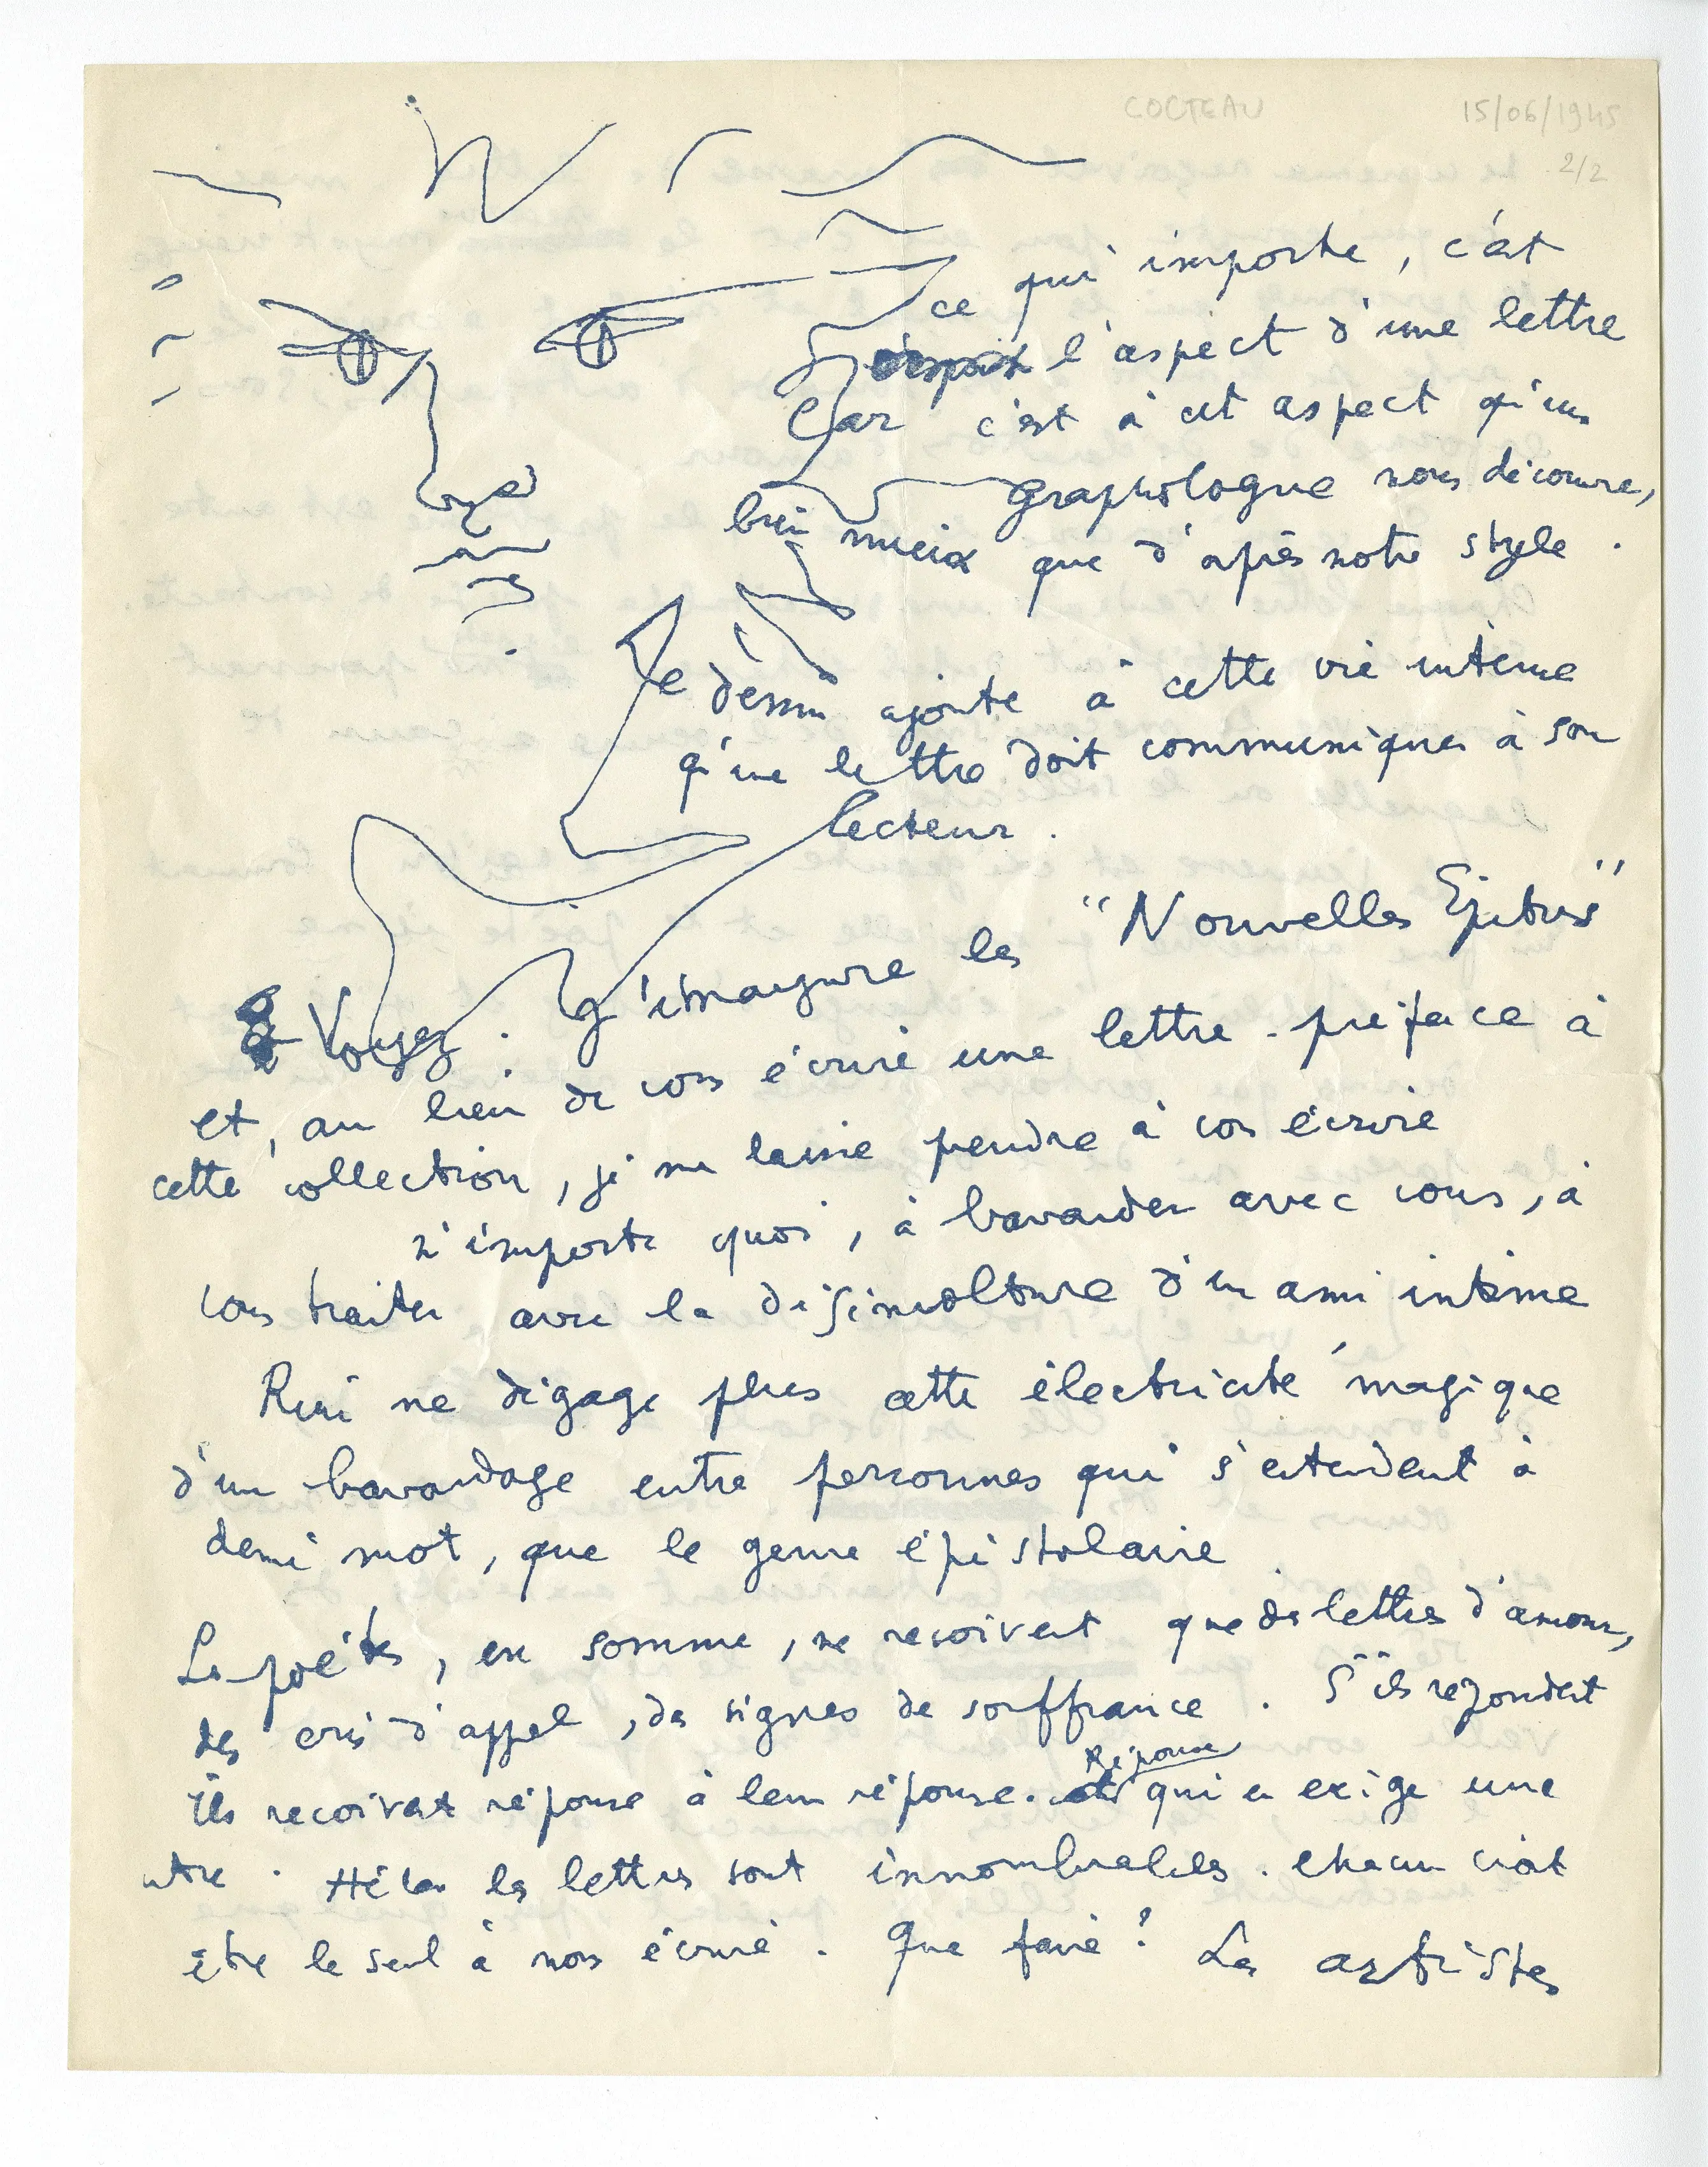 COCTEAU
15/06/1945
2/2
ce qui importe, c'est
l'aspect d'une lettre
Car c'est à cet aspect qu'un
graphologue nous découvre,
bien mieux que d'après notre style.
Le dessin ajoute à cette vie interne
qu'une lettre doit communiquer à son
lecteur.
Voyez. J'inaugure les "Nouvelles Epitres"
et, au lieu de vous écrire une lettre-préface à
cette collection, je me laisse prendre à vous écrire
n'importe quoi, à bavarder avec vous, à
vous traiter avec la désinvolture d'un ami intime
Rien ne dégage plus cette électricité magique
d'un bavardage entre personnes qui s'entendent à
demi mot, que le genre épistolaire
Les poètes, en somme, ne reçoivent que des lettres d'amour,
des cris d'appel, des signes de souffrance. S'ils repondent
ils recoivent réponse à leur réponse. Réponse qui en exige une
autre. Hélas les lettres sont innombrables. Chacun croit
être le seul à nous écrire. Que faire? Les artistes